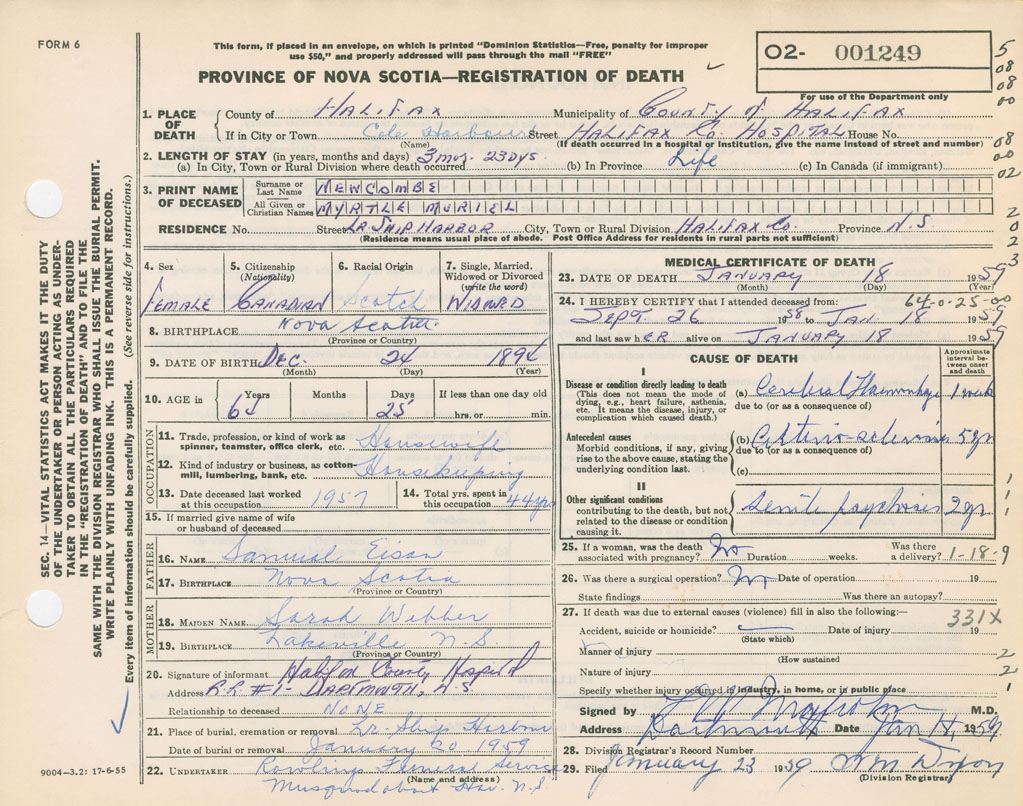 FORM 6
This form, if placed in an envelope, on which is printed "Dominion Statistics—Free, penalty for improper
use $50," and properly addressed will pass through the mail "FREE"
PROVINCE OF NOVA SCOTIA—REGISTRATION OF DEATH
O2- 001249
For use of the Department only
5
08
08
00
08
00
02
2
0
2
3
SEC. 14—VITAL STATISTICS ACT MAKES IT THE DUTY
OF THE UNDERTAKER OR PERSON ACTING AS UNDER-
TAKER TO OBTAIN ALL THE PARTICULARS REQUIRED
IN THE "REGISTRATION OF DEATH" AND TO FILE THE
SAME WITH THE DIVISION REGISTRAR WHO SHALL ISSUE THE BURIAL PERMIT.
WRITE PLAINLY WITH UNFADING INK. THIS IS A PERMANENT RECORD.
Every item of information should be carefully supplied. (See reverse side for instructions.)
1. PLACE OF DEATH County of HALIFAX Municipality of COUNTY OF HALIFAX
If in City or Town Cole Harbour Street HALIFAX Co. HOSPITAL House No.
(Name) (If death occurred in a hospital or institution, give the name instead of street and number)
2. LENGTH OF STAY (in years, months and days) 3 mos. 23 Dys. Life
(a) In City, Town or Rural Division where death occurred (b) In Province (c) In Canada (if immigrant)
3. PRINT NAME OF DECEASED Surname or Last Name NEWCOMBE
All Given or Christian Names MYRTLE MURIEL
RESIDENCE No. Street LR. SHIP HARBOR City, Town or Rural Division HALIFAX Co. Province N.S
(Residence means usual place of abode. Post Office Address for residents in rural parts not sufficient)
4. Sex 5. Citizenship (Nationality) 6. Racial Origin 7. Single, Married, Widowed or Divorced (write the word)
FEMALE CANADIAN Scotch WIDOWED
8. BIRTHPLACE Nova Scotia
(Province or Country)
9. DATE OF BIRTH DEC. 24 1894
(Month) (Day) (Year)
10. AGE in Years Months Days If less than one day old
64 25 hrs. or min.
OCCUPATION
11. Trade, profession, or kind of work as spinner, teamster, office clerk, etc. Housewife
12. Kind of industry or business, as cotton-mill, lumbering, bank, etc. Housekeeping
13. Date deceased last worked at this occupation 1957 14. Total yrs. spent in this occupation 44 yrs
15. If married give name of wife or husband of deceased
FATHER
16. NAME Samual Eisan
17. BIRTHPLACE Nova Scotia
(Province or Country)
MOTHER
18. MAIDEN NAME Sarah Webber
19. BIRTHPLACE Lakeville N.S
(Province or Country)
20. Signature of informant Halifax County Hospital
Address R.R #1- DARTMOUTH, N.S.
Relationship to deceased NONE
21. Place of burial, cremation or removal Lr. Ship Harbour
Date of burial or removal January 20 1959
22. UNDERTAKER Rowlings Funeral Service
(Name and address)
Musquodoboit Har. N.S
9004-3.2: 17-6-55
MEDICAL CERTIFICATE OF DEATH
23. DATE OF DEATH JANUARY 18 1959
(Month) (Day) (Year)
24. I HEREBY CERTIFY that I attended deceased from: 64-0-25-00
SEPT. 26 1958 to JAN 18 1959
and last saw hER alive on JANUARY 18 1959
CAUSE OF DEATH
Approximate interval between onset and death
I
Disease or condition directly leading to death
(This does not mean the mode of dying, e.g., heart failure, asthenia, etc. It means the disease, injury, or complication which caused death.)
(a) Cerebral Haemorrhage 1 week
due to (or as a consequence of)
Antecedent causes
Morbid conditions, if any, giving rise to the above cause, stating the underlying condition last.
(b) Arterio-sclerosis 5 yr
due to (or as a consequence of)
(c)
II
Other significant conditions
contributing to the death, but not related to the disease or condition causing it.
Senile psychosis 2 yr
1
1
1
25. If a woman, was the death associated with pregnancy? No Duration weeks. Was there a delivery? 1-18-9
26. Was there a surgical operation? No Date of operation 19
State findings Was there an autopsy?
27. If death was due to external causes (violence) fill in also the following:— 331X
Accident, suicide or homicide? Date of injury 19
(State which)
Manner of injury 2
(How sustained)
Nature of injury 2
Specify whether injury occurred in industry, in home, or in public place 1
Signed by M.D.
Address Dartmouth Date Jan 1959
28. Division Registrar's Record Number
29. Filed January 23 1959 Wm Dixon
(Division Registrar)